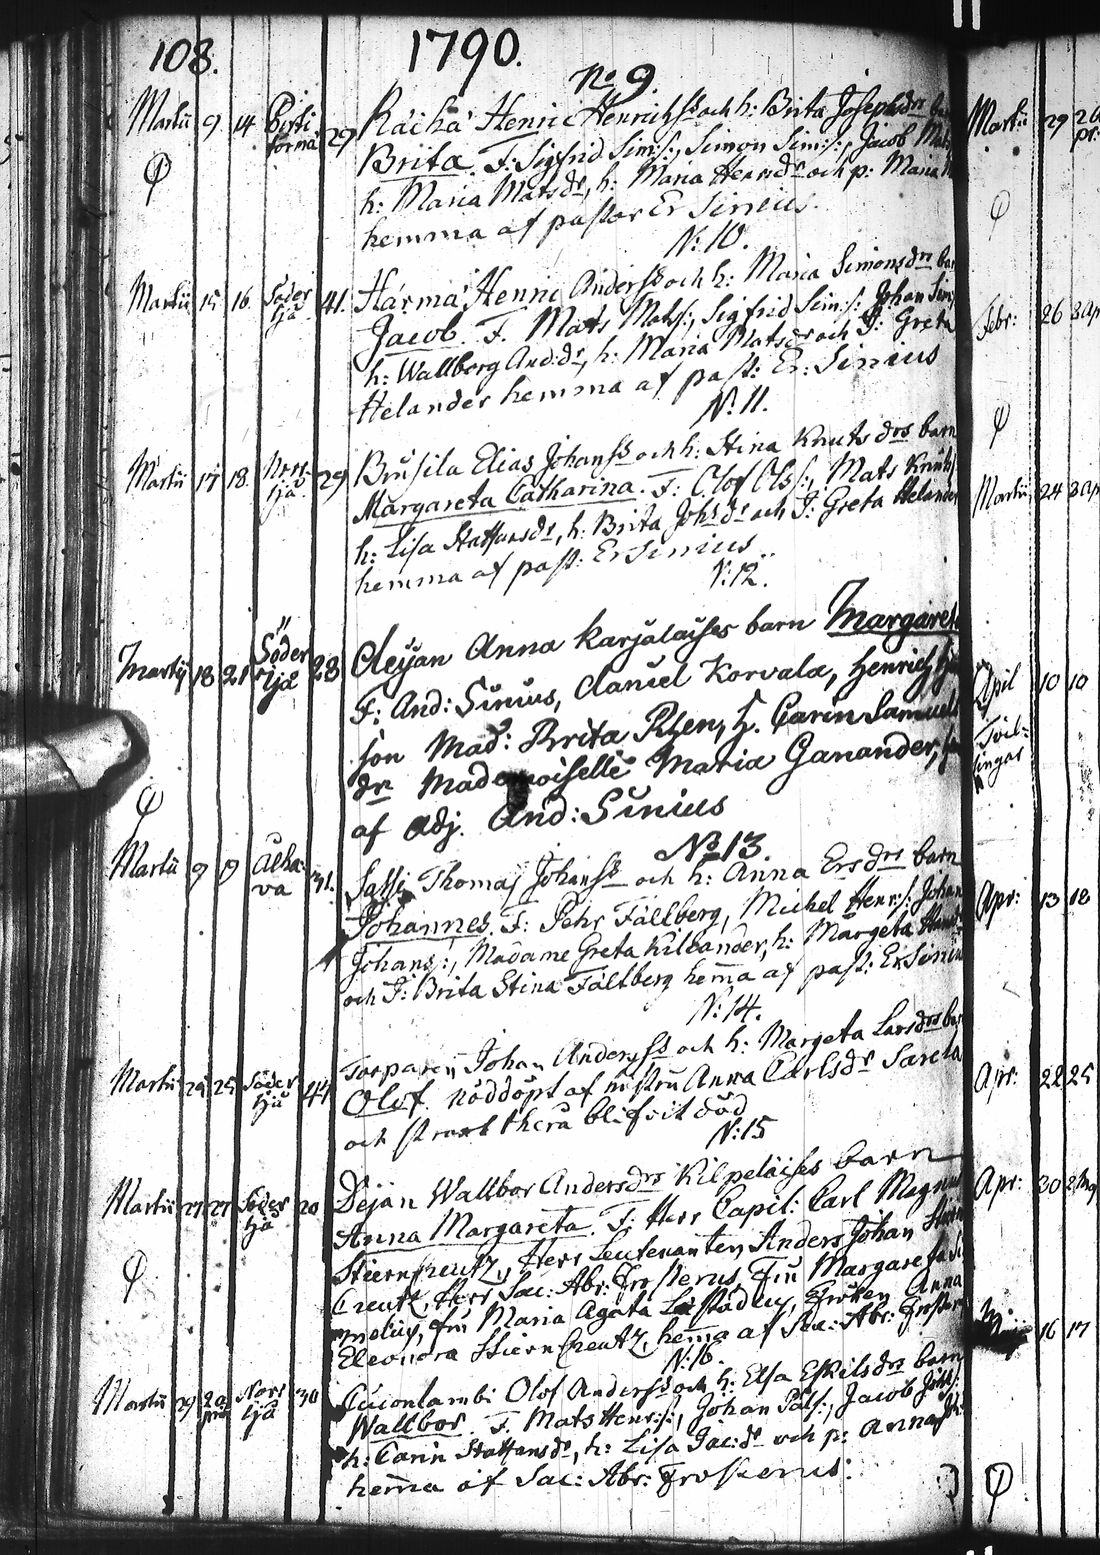 108.
1790.
No 9.
Martii 9 14 Pirti forma 29 Råcka Henric Henrichss och h: Brita Josephdrs
Brita. F: Sigfrid Sim:s:, Simon Sim:s:, Jacob Mats
h: Maria Matsdr, h: Maria Henrsdr och p: Maria
hemma af pastor Er Sinius.
N: 10.
Martii 15 16. Söder kjå 41. Härmä Henric Anderss och h: Maria Simonsdrs
Jacob. F. Mats Mats:, Sigfrid Sim:s: Johan Sim:
h: Wallborg And:dr, h: Maria Matsdr och J: Greta
Helander hemma af past: Er: Sinius
N: 11.
Martii 17 18. Norr kjå 29 Brusila Elias Johanss och h: Stina Knutsdrs barn
Margareta Catharina. F: Olof Ols:, Mats Knuts:
h: Lisa Staffansdr, h: Brita Johsdr och J: Greta Helander
hemma af past: Er Sinius
N: 12.
Martij 18 21 Söder kjå 28 Anna Karjalaises barn Margaret
F: And: Sinius, Daniel Korvala, Henrich
son Mad: Brita Rhen, h. Carin Samuels
dr Mademoiselle Maria Ganander,
af adj. And: Sinius
No 13.
Martii 9 9 Alha va 31. Sassi Thomas Johanss och h: Anna Ersdrs barn
Johannes. F: Pehr Fältberg, Michel Henr:s: Johan
Johans:, Madame Greta Kiliander, h: Margeta
och J: Brita Stina Fältberg hema af past: Er Sinius
N: 14.
Martii 24 25 Söder kjå 44 Torparen Johan Anderss och h: Margeta Larsdrs
Olof. nöddöpt af hustru Anna Carlsdr Sarela
och strax thera blifvit död
N: 15
Martii 27 27 Söder kjå 20 Pejan Wallbor Andersdrs Kilpeläises barn
Anna Margareta. F: Herr Capit: Carl Magnus
Stierncreutz, Herr Leutenanten Anders Johan
Creutz, Herr Sac: Abr: Frosterus, Fru Margareta
fru Maria Agata Lästadius, Fröken Anna
Eleonora StiernCreutz, hema af Sac: Abr: Froster
N: 16.
Martii 29 Norr kjå 30 Olof Anderss och h: Elsa Eskilsdrs barn
Wallbor. F. Mats Henr:s:, Johan Påls:, Jacob
h: Carin Staffansdr, h: Lisa Jac:dr och p: Anna
hema af Sac: Abr: Frosterus:
Martii 29 26
Febr: 26
Martii 24
April 10 10
Apr: 13 18
Apr: 22 25
Apr: 30
16 17